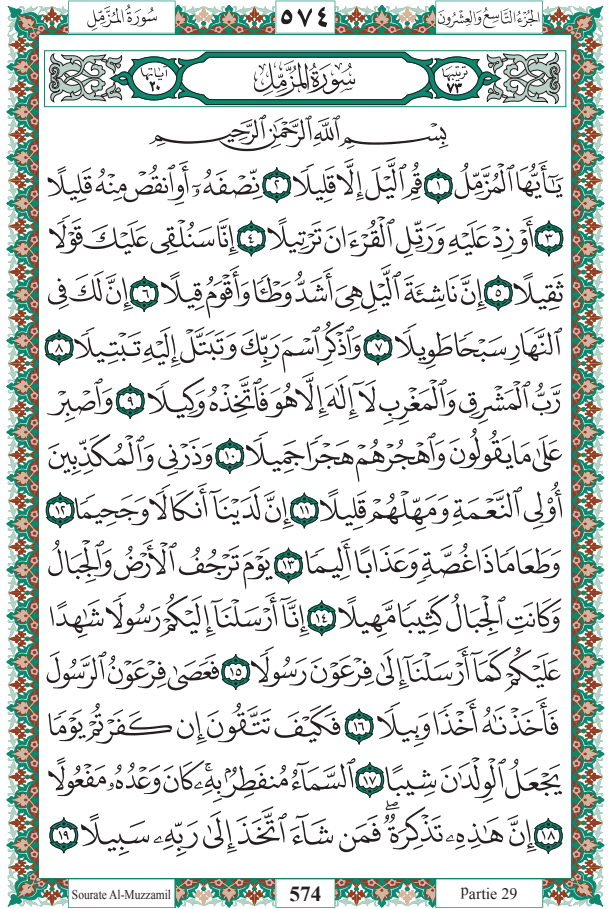 سُورَةُ المُزَّمِّل ٥٧٤ الجُزْءُ التَّاسِعُ وَالعِشْرُونَ
آيَاتُهَا ٢٠ سُورَةُ المُزَّمِّل تَرْتِيبُهَا ٧٣
بِسْمِ ٱللَّهِ ٱلرَّحْمَٰنِ ٱلرَّحِيمِ
يَٰٓأَيُّهَا ٱلْمُزَّمِّلُ ١ قُمِ ٱلَّيْلَ إِلَّا قَلِيلًا ٢ نِّصْفَهُۥٓ أَوِ ٱنقُصْ مِنْهُ قَلِيلًا
٣ أَوْ زِدْ عَلَيْهِ وَرَتِّلِ ٱلْقُرْءَانَ تَرْتِيلًا ٤ إِنَّا سَنُلْقِى عَلَيْكَ قَوْلًا
ثَقِيلًا ٥ إِنَّ نَاشِئَةَ ٱلَّيْلِ هِىَ أَشَدُّ وَطْـًٔا وَأَقْوَمُ قِيلًا ٦ إِنَّ لَكَ فِى
ٱلنَّهَارِ سَبْحًا طَوِيلًا ٧ وَٱذْكُرِ ٱسْمَ رَبِّكَ وَتَبَتَّلْ إِلَيْهِ تَبْتِيلًا ٨
رَّبُّ ٱلْمَشْرِقِ وَٱلْمَغْرِبِ لَآ إِلَٰهَ إِلَّا هُوَ فَٱتَّخِذْهُ وَكِيلًا ٩ وَٱصْبِرْ
عَلَىٰ مَا يَقُولُونَ وَٱهْجُرْهُمْ هَجْرًا جَمِيلًا ١٠ وَذَرْنِى وَٱلْمُكَذِّبِينَ
أُو۟لِى ٱلنَّعْمَةِ وَمَهِّلْهُمْ قَلِيلًا ١١ إِنَّ لَدَيْنَآ أَنكَالًا وَجَحِيمًا ١٢
وَطَعَامًا ذَا غُصَّةٍ وَعَذَابًا أَلِيمًا ١٣ يَوْمَ تَرْجُفُ ٱلْأَرْضُ وَٱلْجِبَالُ
وَكَانَتِ ٱلْجِبَالُ كَثِيبًا مَّهِيلًا ١٤ إِنَّآ أَرْسَلْنَآ إِلَيْكُمْ رَسُولًا شَٰهِدًا
عَلَيْكُمْ كَمَآ أَرْسَلْنَآ إِلَىٰ فِرْعَوْنَ رَسُولًا ١٥ فَعَصَىٰ فِرْعَوْنُ ٱلرَّسُولَ
فَأَخَذْنَٰهُ أَخْذًا وَبِيلًا ١٦ فَكَيْفَ تَتَّقُونَ إِن كَفَرْتُمْ يَوْمًا
يَجْعَلُ ٱلْوِلْدَٰنَ شِيبًا ١٧ ٱلسَّمَآءُ مُنفَطِرٌۢ بِهِۦ ۚ كَانَ وَعْدُهُۥ مَفْعُولًا
١٨ إِنَّ هَٰذِهِۦ تَذْكِرَةٌ ۖ فَمَن شَآءَ ٱتَّخَذَ إِلَىٰ رَبِّهِۦ سَبِيلًا ١٩
Sourate Al-Muzzamil 574 Partie 29